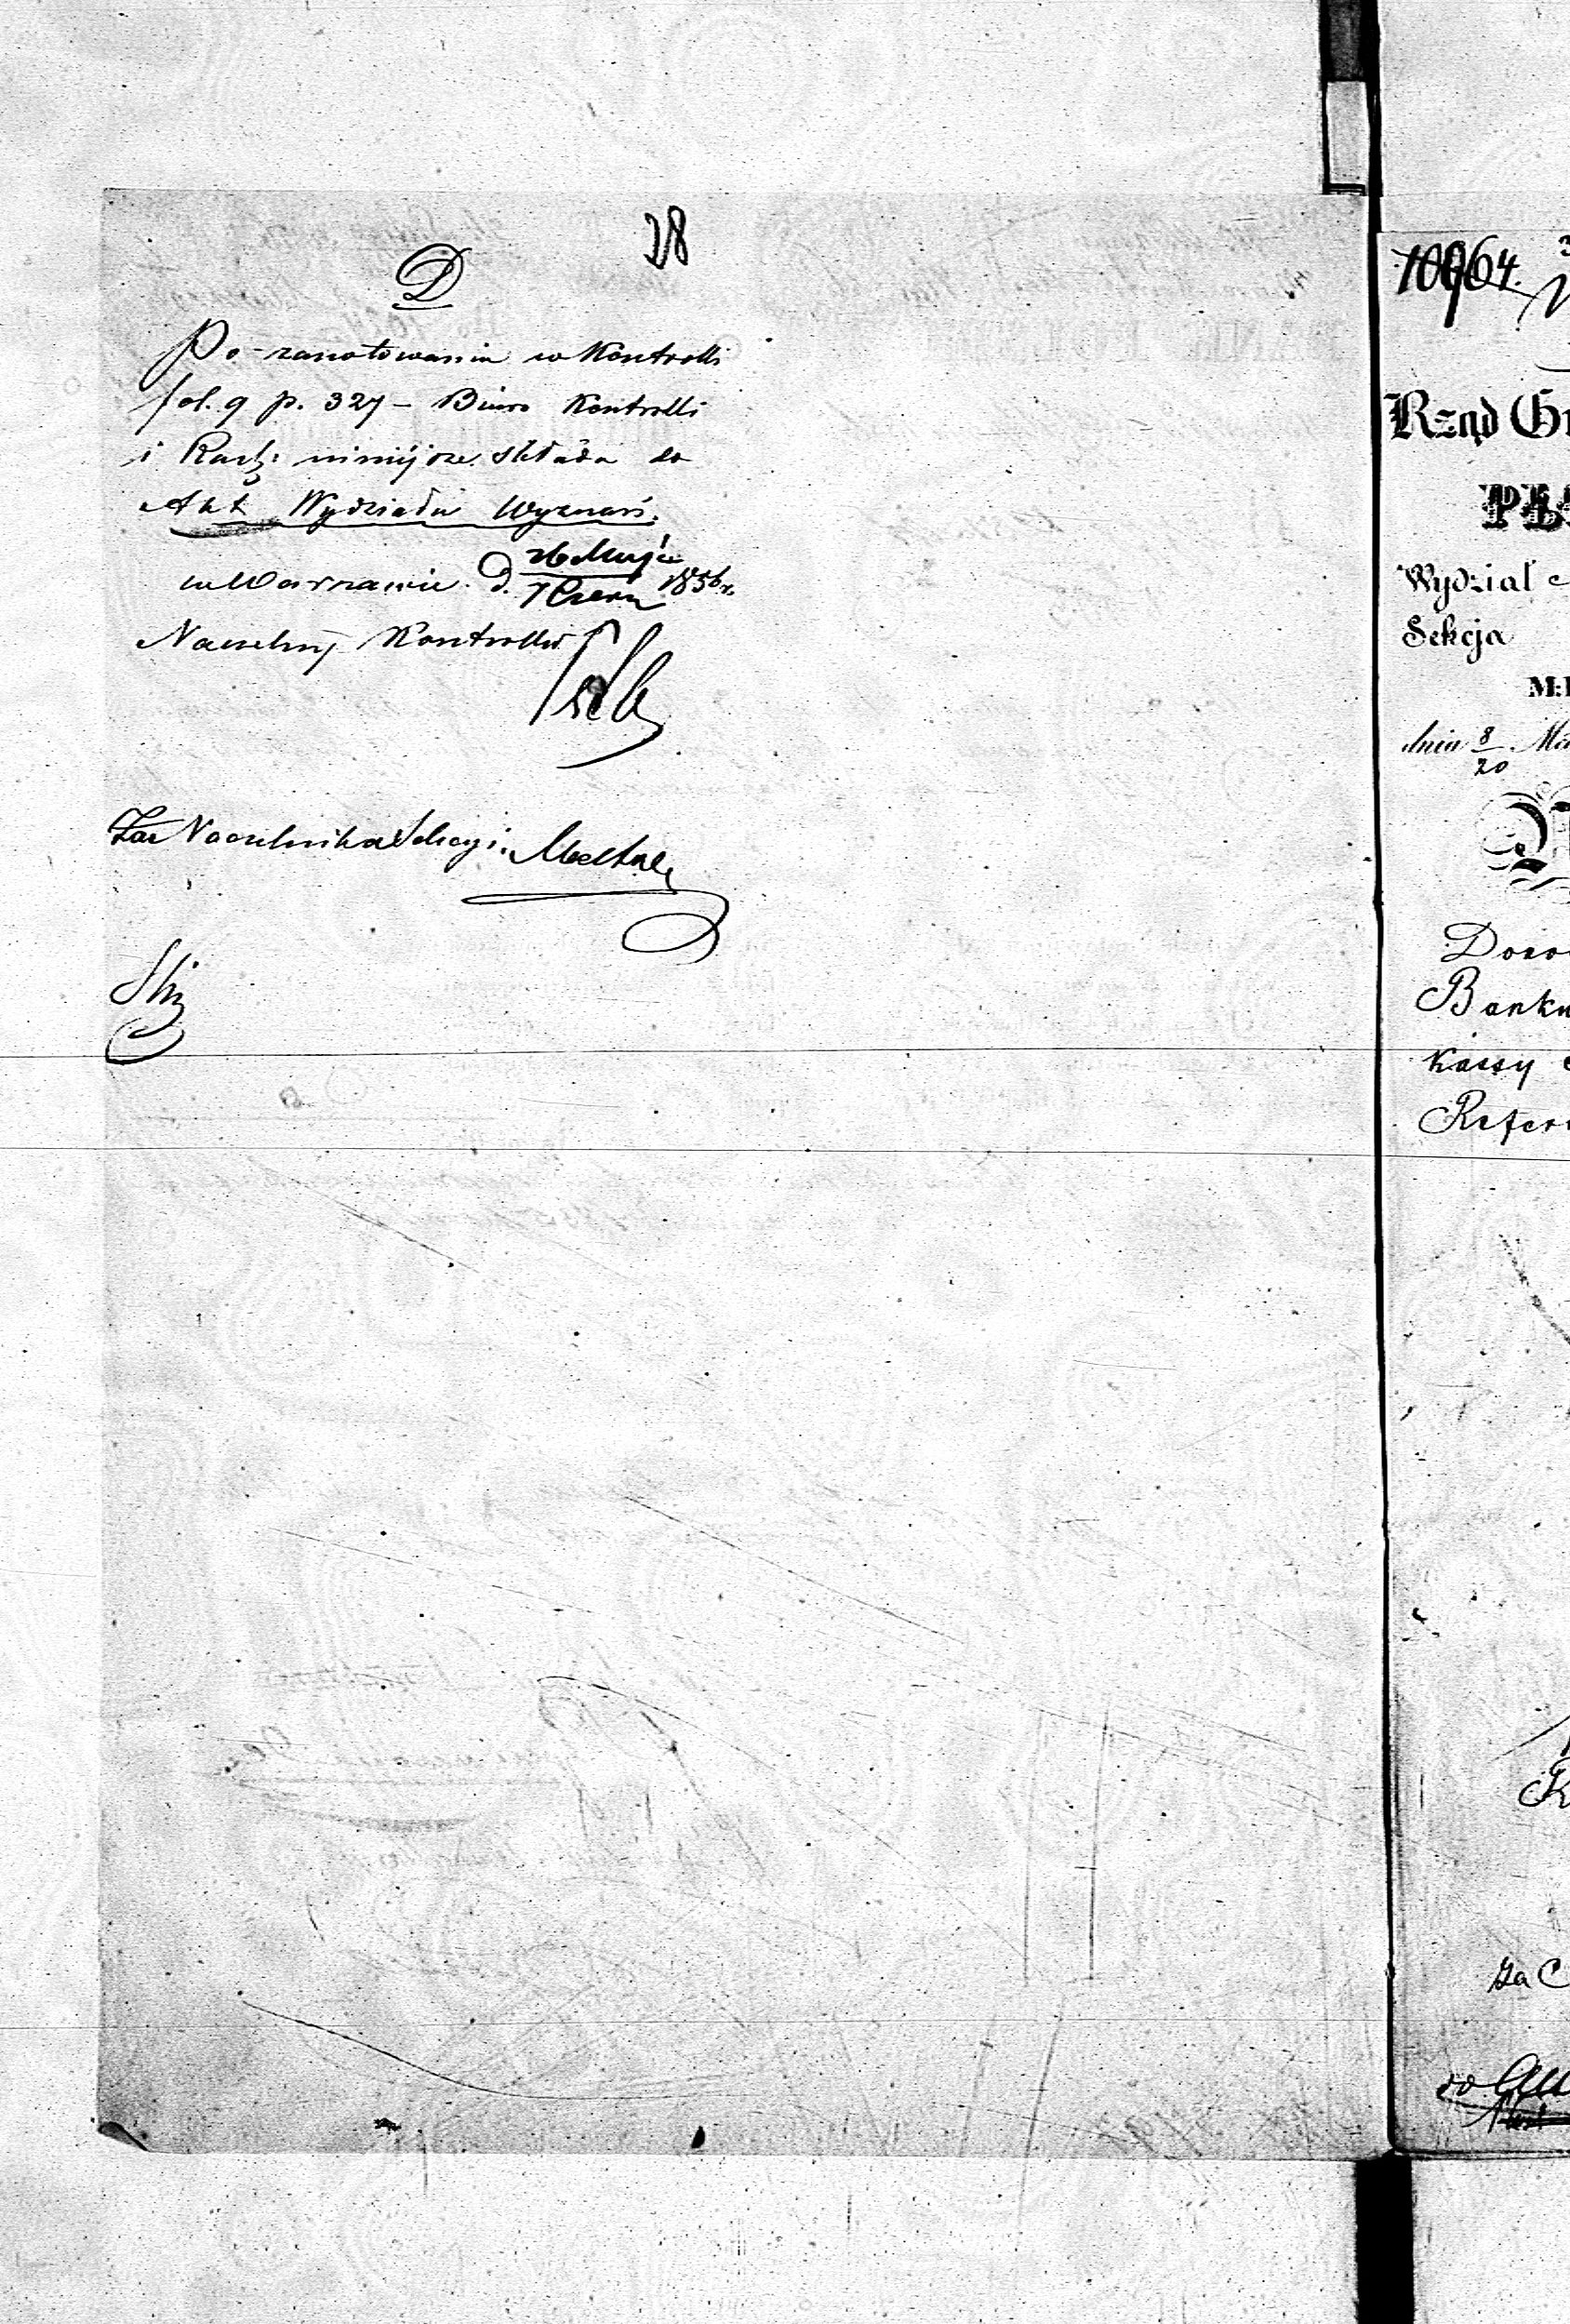 28
D
Po zanotowaniu w Kontrolli
fol. 9 p. 327 – Biuro Kontrolli
i Rach: niniejsze składa do
Akt Wydziału Wyznań.
w Warszawie d. 26 Maja
7 Czerw 1856 r.
Naczelny Kontroller
Za Naczelnika Sekcyi
10964.
Rząd G
Wydział
Sekcja
M:
dnia 8/20 Ma
Banku
Kassy
Refer
za